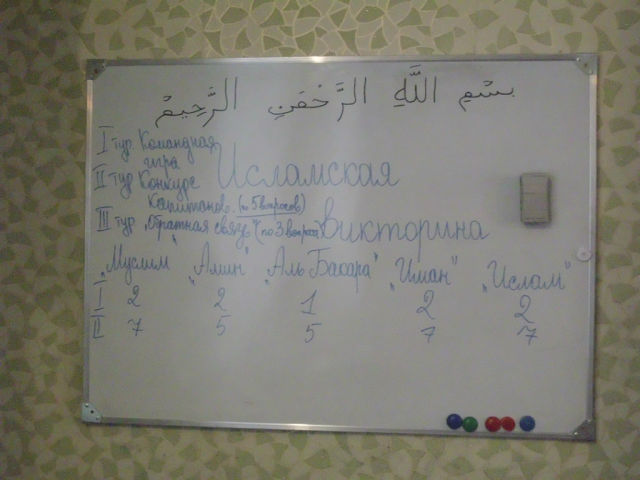 بِسْمِ اللَّهِ الرَّحْمَنِ الرَّحِيمِ
I тур. Командная
игра
II тур Конкурс
Капитанов. (по 5 вопросов)
III тур „Обратная связь" (по 3 вопроса)
Исламская
Викторина
„Муслим" „Амин" „Аль Бакара" „Иман" „Ислам"
I 2 2 1 2 2
II 7 5 5 7 7